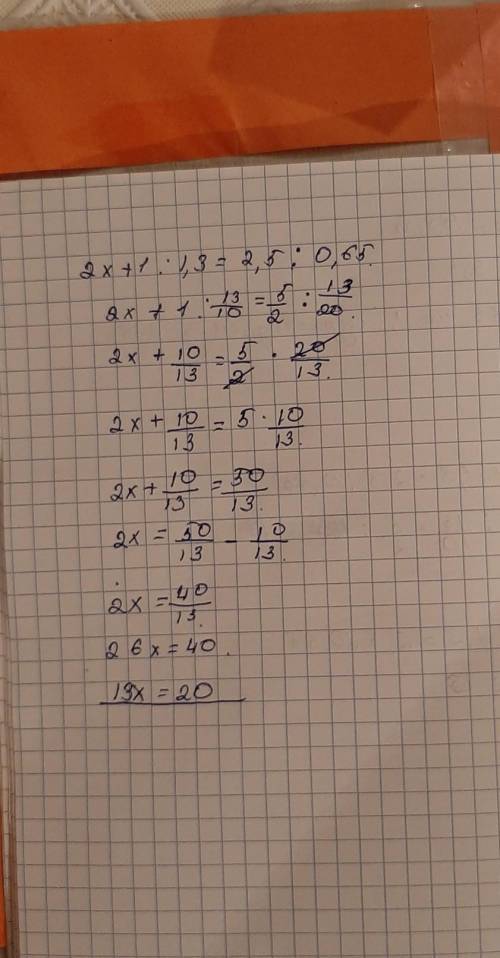 2x+1:1,3=2,5:0,65.
2x+1:13/10=5/2:13/20.
2x+10/13=5/2·20/13.
2x+10/13=5·10/13.
2x+10/13=50/13.
2x=50/13-10/13.
2x=40/13.
26x=40.
13x=20